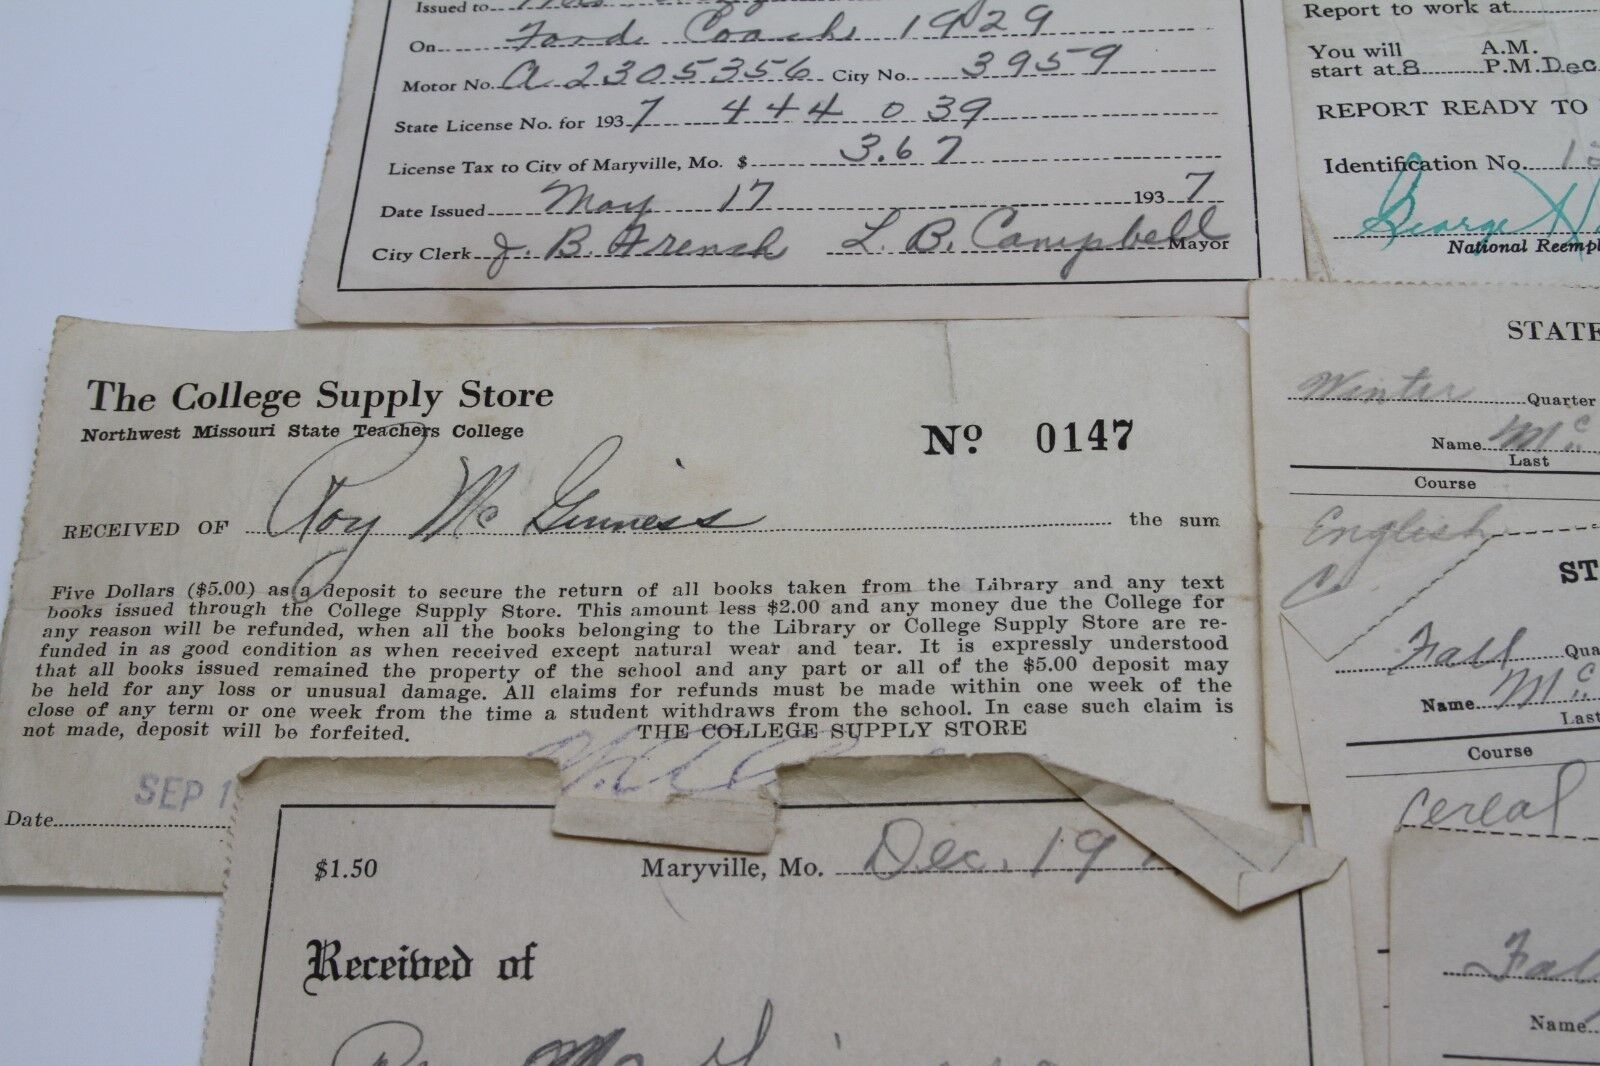 Issued to
On Ford Coach 1929
Motor No. A 2305356 City No. 3959
State License No. for 1937 444 039
License Tax to City of Maryville, Mo. $ 3.67
Date Issued May 17 1937
City Clerk J. B. French L. B. Campbell Mayor
Report to work at
You will start at 8 A.M. P.M. Dec
REPORT READY TO
Identification No.
George
National Reempl
The College Supply Store
Northwest Missouri State Teachers College
No 0147
RECEIVED OF Roy McGinness the sum
Five Dollars ($5.00) as a deposit to secure the return of all books taken from the Library and any text
books issued through the College Supply Store. This amount less $2.00 and any money due the College for
any reason will be refunded, when all the books belonging to the Library or College Supply Store are re-
funded in as good condition as when received except natural wear and tear. It is expressly understood
that all books issued remained the property of the school and any part or all of the $5.00 deposit may
be held for any loss or unusual damage. All claims for refunds must be made within one week of the
close of any term or one week from the time a student withdraws from the school. In case such claim is
not made, deposit will be forfeited. THE COLLEGE SUPPLY STORE
SEP 1
Date
$1.50 Maryville, Mo. Dec. 19
Received of
STATE
Winter Quarter
Name Mc
Last
Course
English
C
ST
Fall Qua
Name Mc
Last
Course
Cereal
Fal
Name